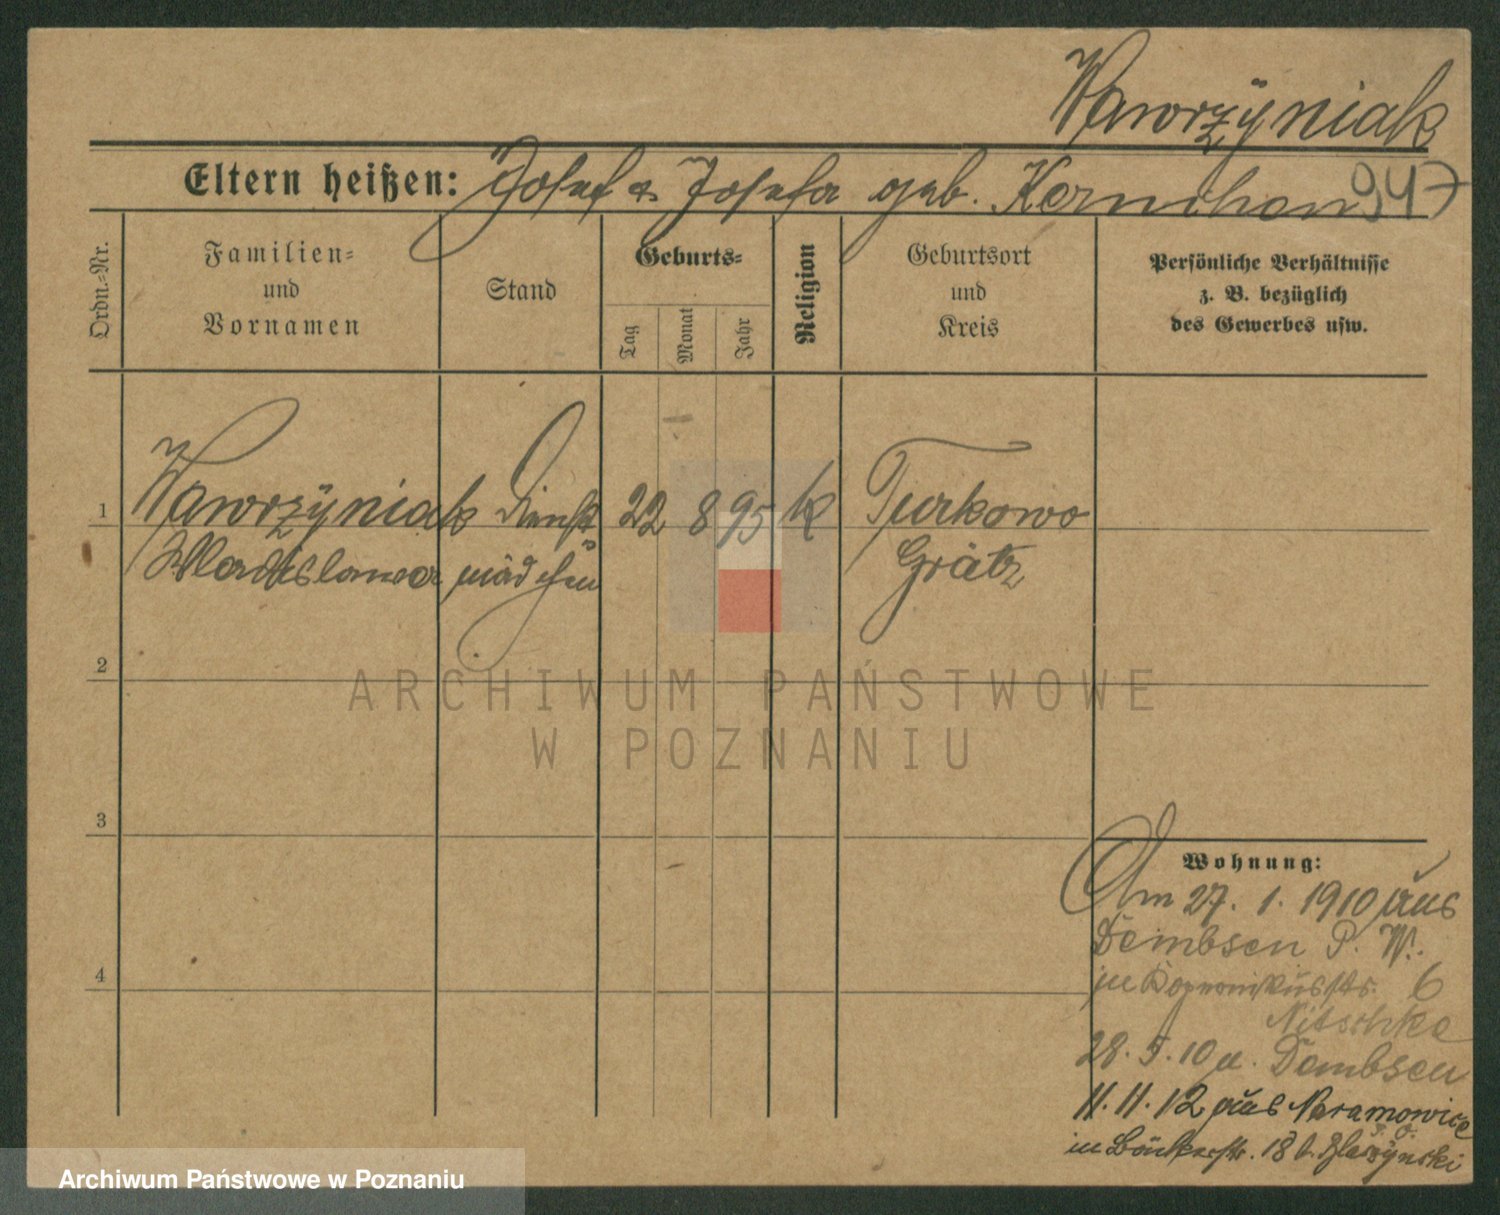 Wawrzÿniak
Eltern heißen: Josef & Josefa geb. 
947
Ordn.=Nr.
Familien=
und
Vornamen
Stand
Geburts=
Tag
Monat
Jahr
Religion
Geburtsort
und
Kreis
Persönliche Verhältnisse
z. B. bezüglich
des Gewerbes usw.
1
Wawrzÿniak Dienst 22 8 95 K Turkowo
Wladislawa mädchen Grätz
2
3
4
Wohnung:
Am 27. 1. 1910 aus
Dembsen P. W.
in Kopernikusstr. 6
Nitschke
28. 5. 10 n. Dembsen
11. 11. 12 aus Naramowice
P. O.
in Bäckerstr. 18 b.
ARCHIWUM PAŃSTWOWE
W POZNANIU
Archiwum Państwowe w Poznaniu